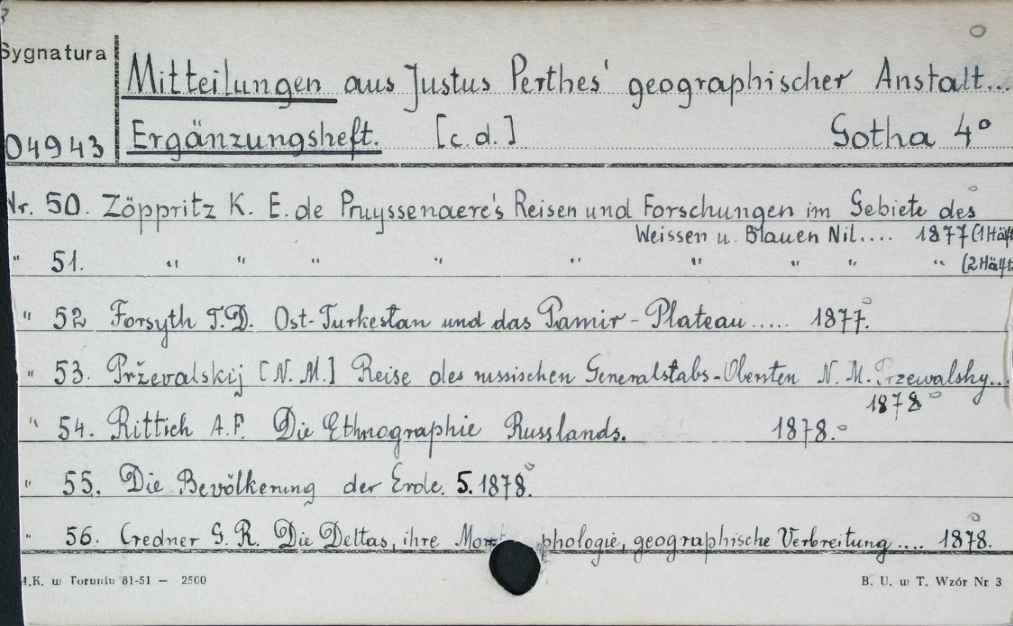 Sygnatura
Mitteilungen aus Justus Perthes' geographischer Anstalt...
04943
Ergänzungsheft. [c.d.] Gotha 4°
Nr. 50. Zöppritz K. E. de Pruyssenaere's Reisen und Forschungen im Gebiete des
Weissen u. Blauen Nil.... 1877 (1 Hälft
" 51. " " " " " " " " " (2 Hälft
" 52 Forsyth T.D. Ost-Turkestan und das Pamir-Plateau..... 1877.
" 53. Prževalskij [N.M.] Reise des russischen Generalstabs-Obersten N.M. Przewalsky...
1878
" 54. Rittich A.F. Die Ethnographie Russlands. 1878.
" 55. Die Bevölkerung der Erde. 5. 1878.
" 56. Credner G.R. Die Deltas, ihre Mor phologie, geographische Verbreitung.... 1878.
.K. w Toruniu 81-51 — 2500
B. U. w T. Wzór Nr 3